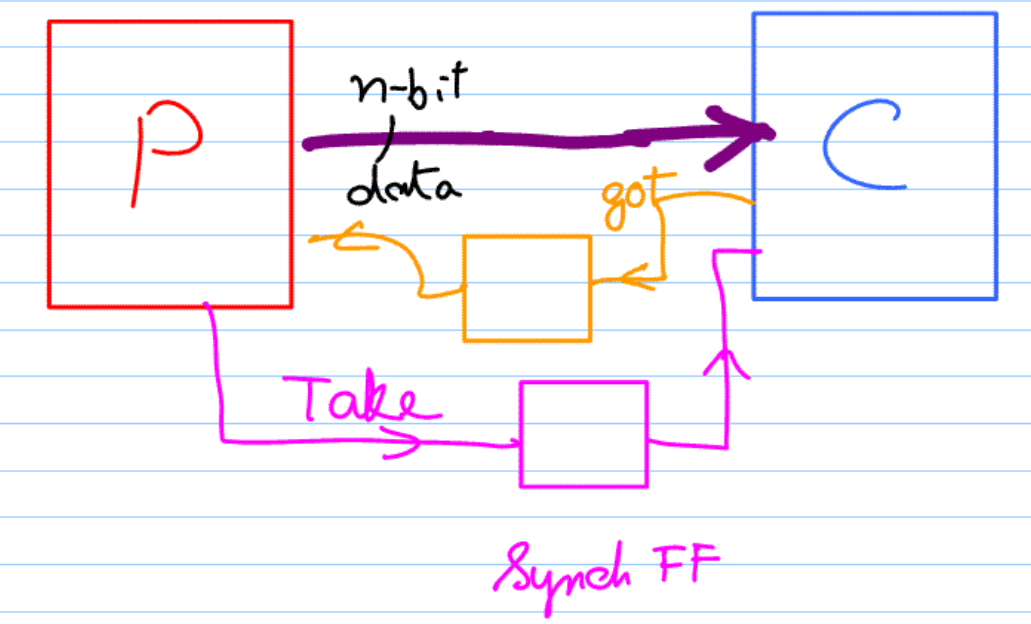 P
n-bit
data
C
got
Take
Synch FF